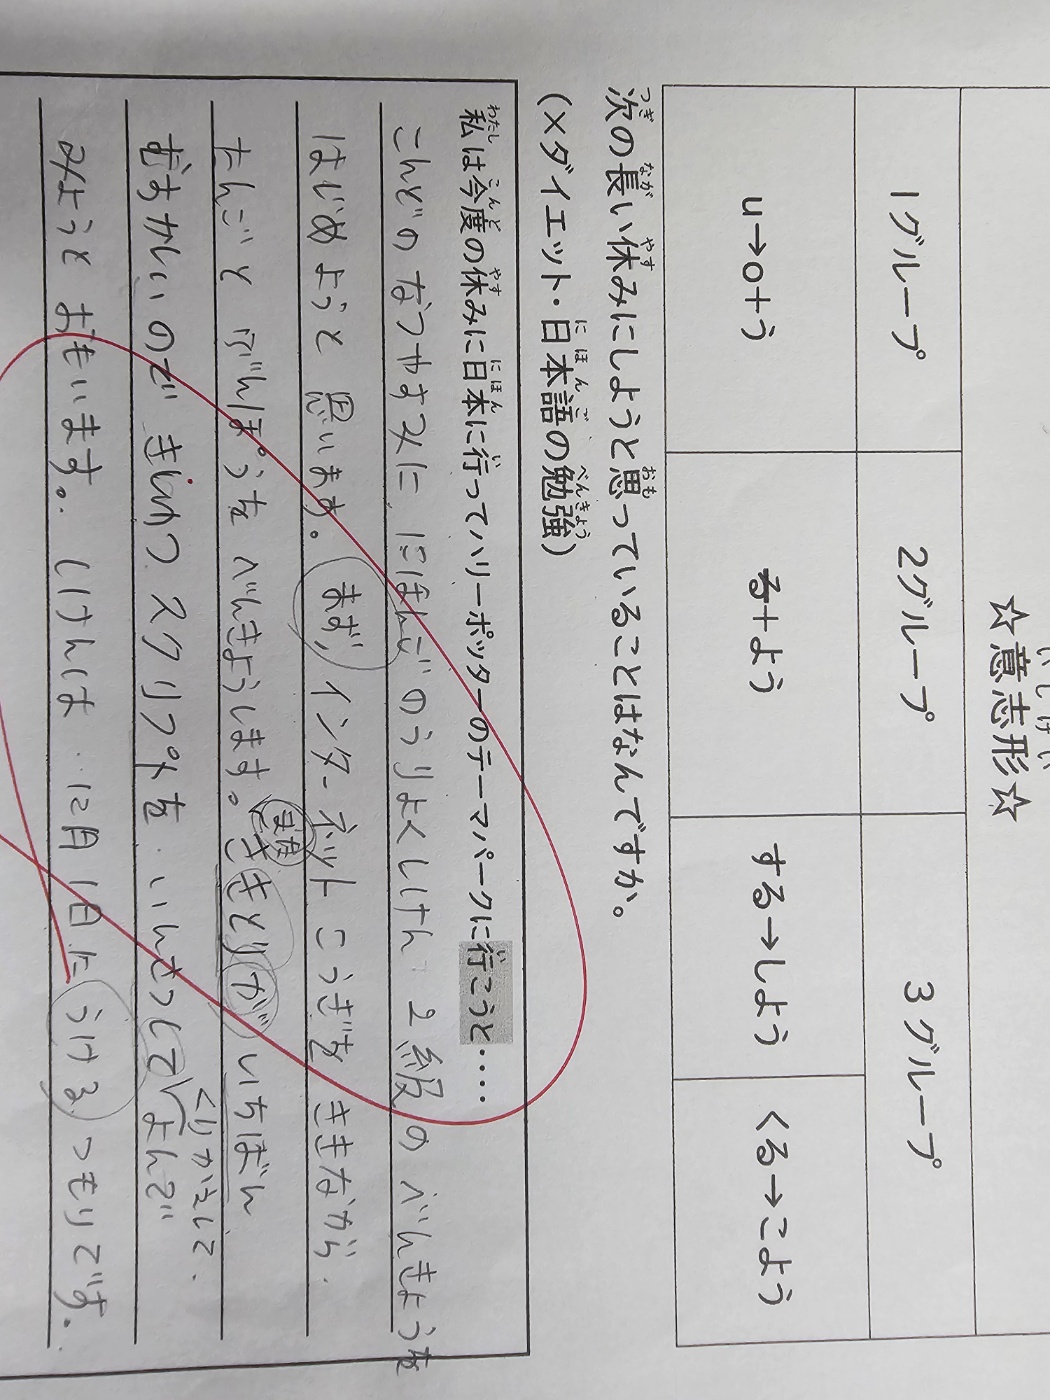 ☆意志形☆
いしけい
1グループ 2グループ 3グループ
u→o+う る+よう する→しよう くる→こよう
次の長い休みにしようと思っていることはなんですか。
つぎ なが やす おも
(×ダイエット・日本語の勉強)
にほんご べんきょう
私は今度の休みに日本に行ってハリーポッターのテーマパークに行こうと・・・・
わたし こんど やす にほん い い
こんどのなつやすみに にほんごのうりよくしけん 2級のべんきょうを
はじめようと 思います。まず, インターネット こうぎを ききながら
たんごと ぶんぽうを べんきょうします。ききとりが いちばん
むずかしいので きゅつ スクリプトを いんさつして よんで
くりかえして
みようと おもいます。しけんは 12月1日に うける つもりです。